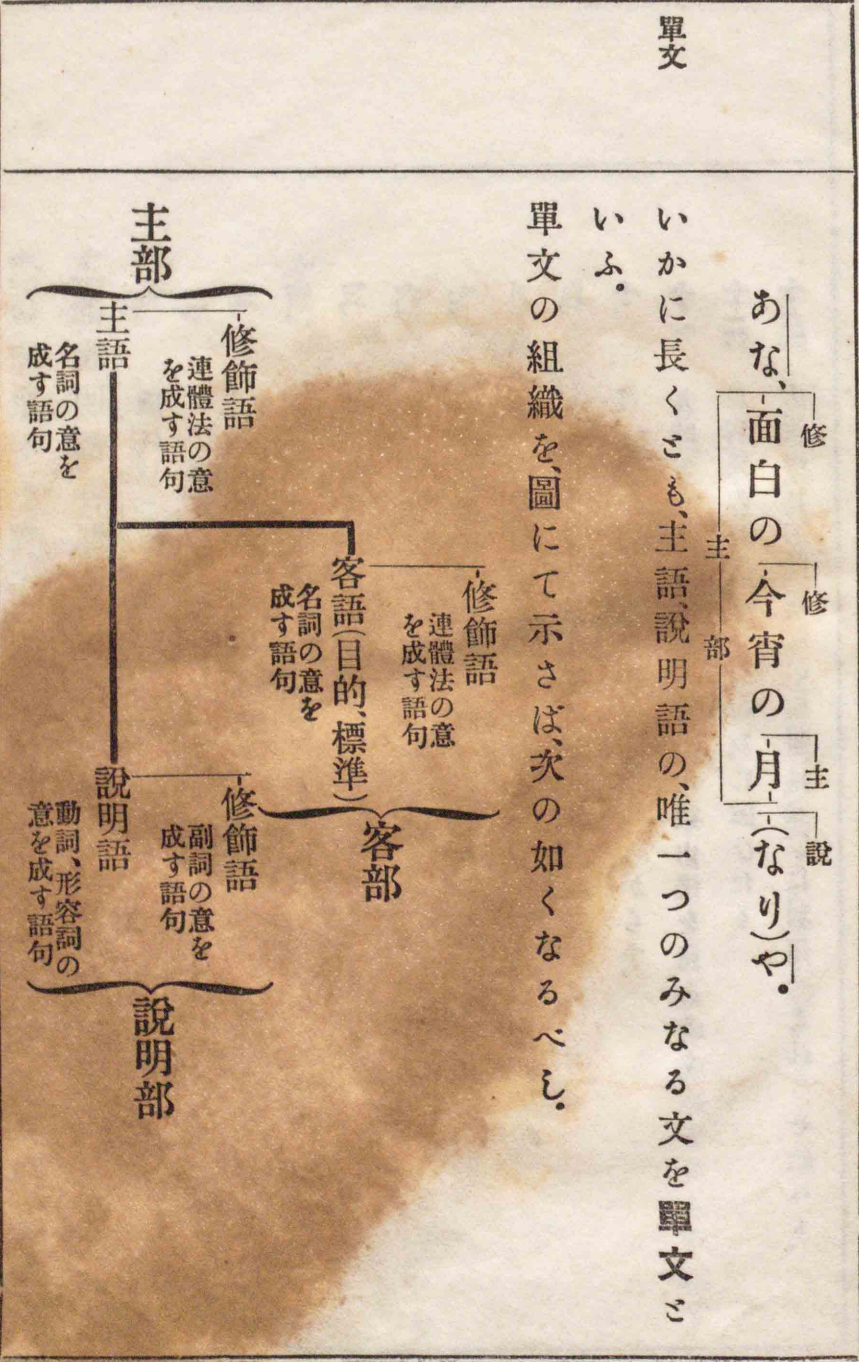 單文
修
修
主
說
あな、面白の今宵の月(なり)や。
主部
いかに長くとも、主語、說明語の、唯一つのみなる文を單文と
いふ。
單文の組織を、圖にて示さば、次の如くなるべし。
主部
修飾語
連體法の意
を成す語句
主語
名詞の意を
成す語句
修飾語
連體法の意
を成す語句
客語(目的、標準)
名詞の意を
成す語句
客部
修飾語
副詞の意を
成す語句
說明語
動詞、形容詞の
意を成す語句
說明部